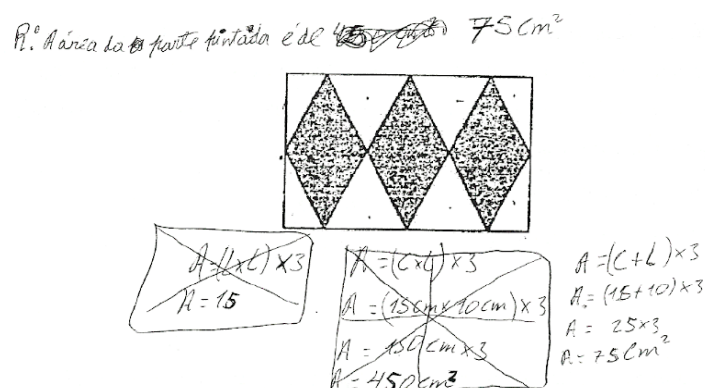 R: A área da parte pintada é de 75 cm²
A=(LxL)x3
A=15
A=(CxL)x3
A=(15cmx10cm)x3
A=150cmx3
A=450cm²
A=(C+L)x3
A=(15+10)x3
A= 25x3
A=75cm²